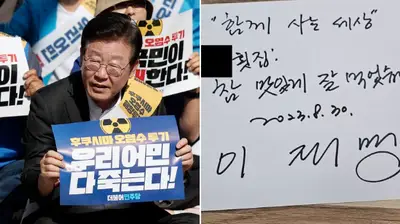 오염수 투기
민이
한다!
다!
후쿠시마 오염수 투기
우리 어민
다 죽는다!
더불어민주당
"함께 사는 세상"
횟집:
참 맛있게 잘 먹었습
2023.8.30.
이 재명